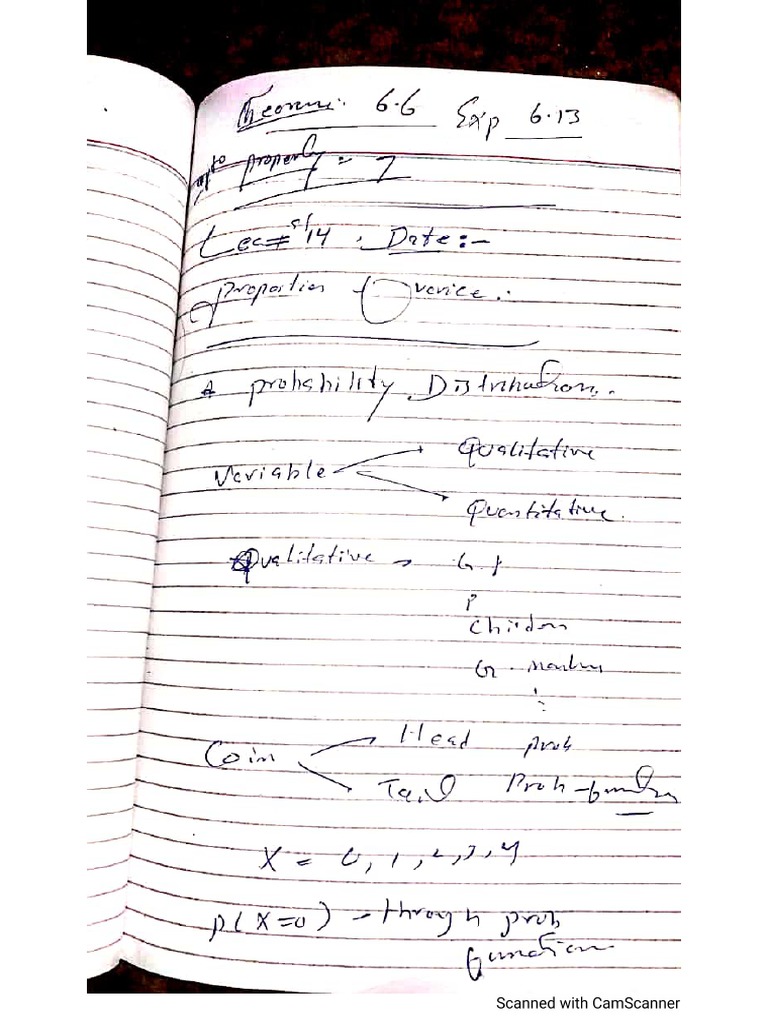 Theorem: 6.6 Exp 6.13
property = 7
Lec# 14. Date:-
properties of
A probability Distribution.
Variable Qualitative
Quantitative.
Qualitative →
P
G.
Coin Head prob
Tail Prob-
X = 0, 1, 2, 3, 4
P(X=0) - through prob
function
Scanned with CamScanner